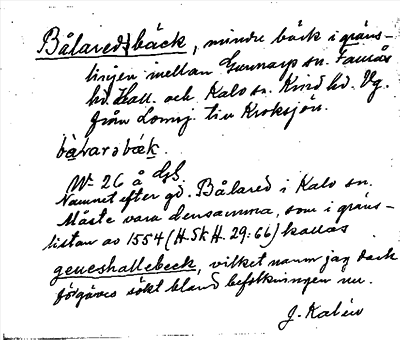 Bålaredsbäck, mindre bäck i gräns-
linjen mellan Gunnarp sn. Faurås
hd. Hall. och Kalv sn. Kind hd. Vg.
från Lomsj. till Kroksjön.
bå̀varəbæk.
W- 26 å
Namnet efter gd. Bålared i Kalv sn.
Måste vara densamma, som i gräns-
listan av 1554 (H.Sk H. 29:66) kallas
geneshallebeck, vilket namn jag dock
förgäves sökt bland befolkningen nu.
J. Kalén